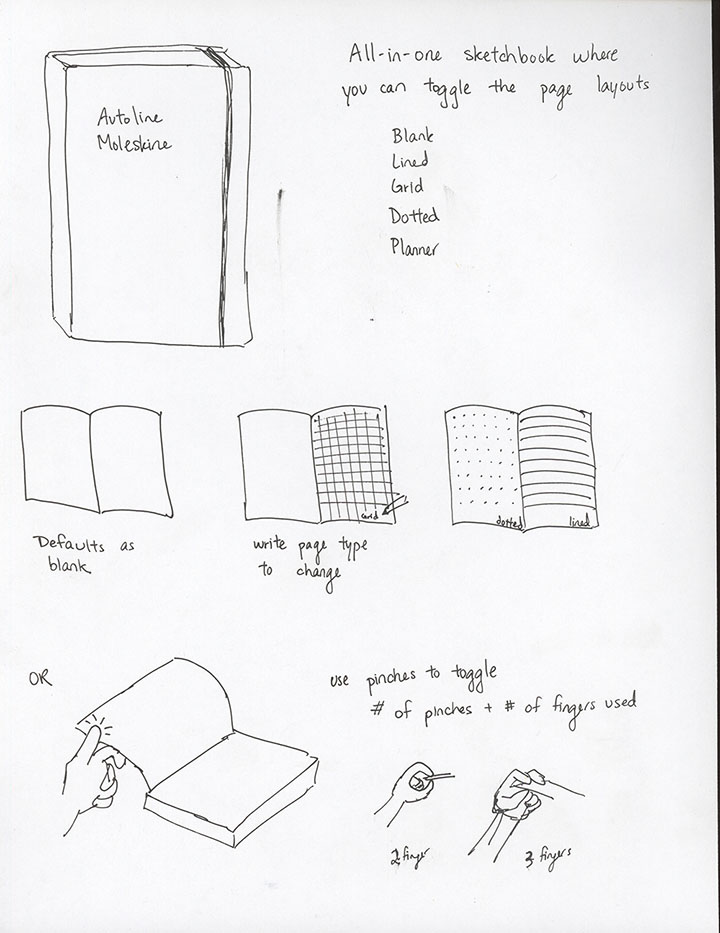 Autoline
Moleskine
All-in-one sketchbook where
you can toggle the page layouts
Blank
Lined
Grid
Dotted
Planner
Defaults as
blank
Grid
write page type
to change
dotted
lined
OR
use pinches to toggle
# of pinches + # of fingers used
2 finger
3 fingers